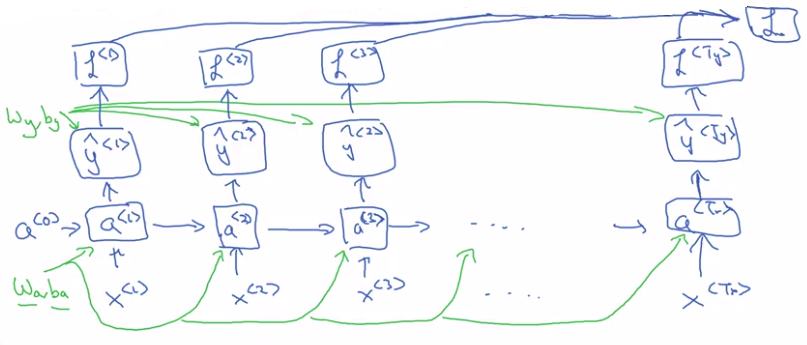 L
L<1> L<2> L<3> L<Ty>
Wy,by
ŷ<1> ŷ<2> ŷ<2> ŷ<Ty>
a<0> a<1> a<2> a<3> ..... a<Tx>
Wa,ba
x<1> x<2> x<3> ..... x<Tx>